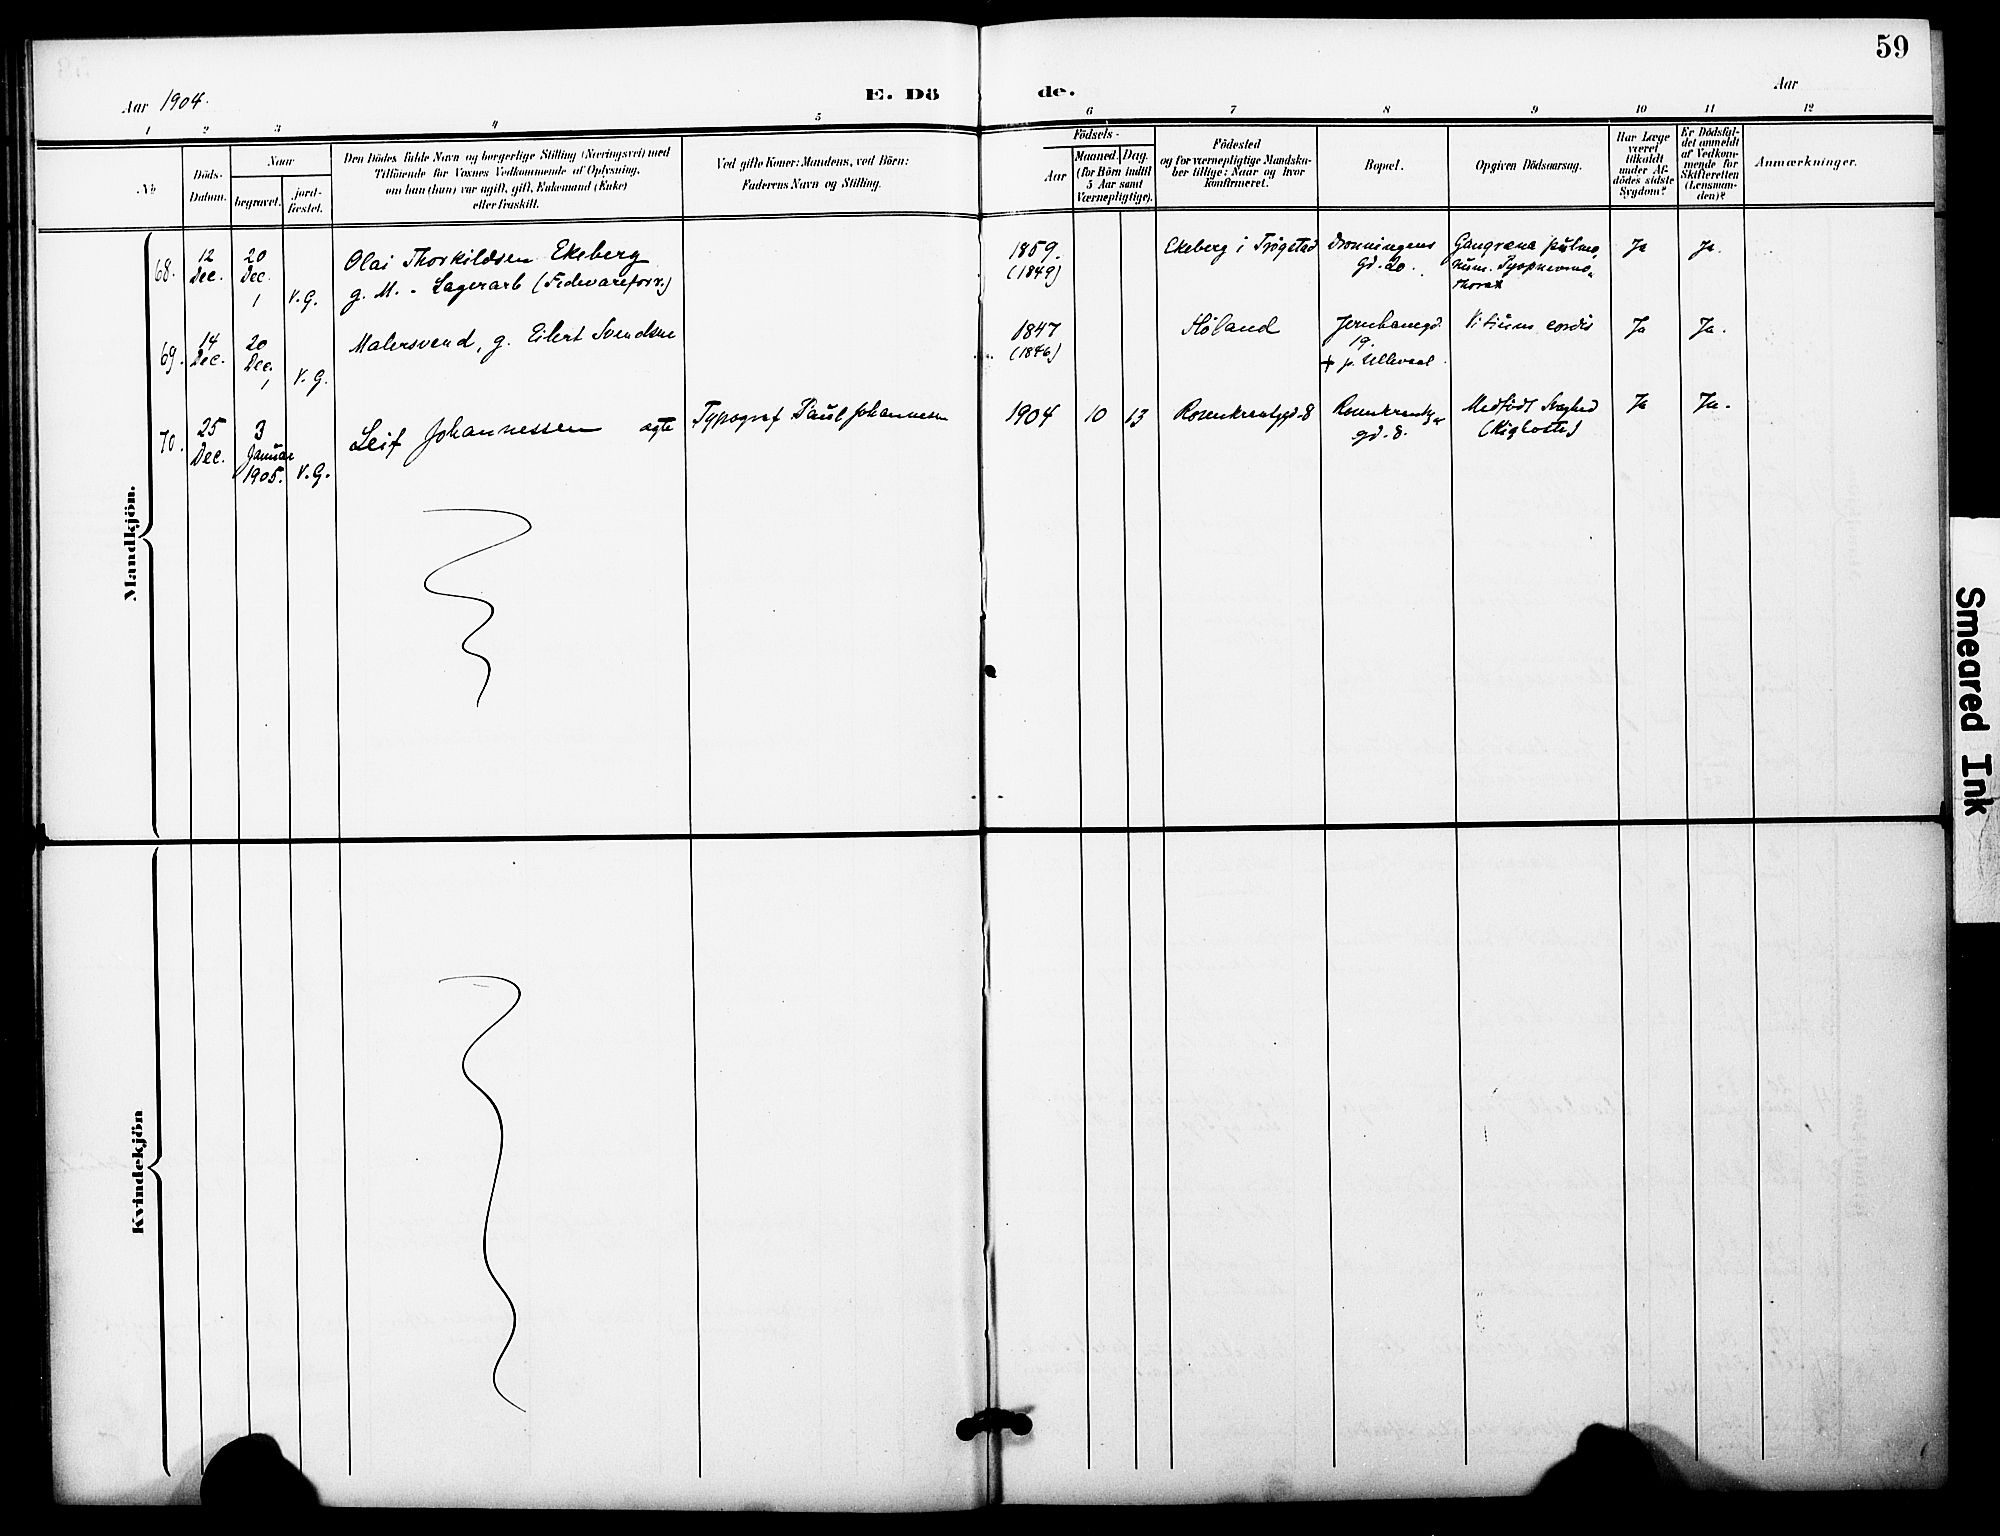 59
Aar 1904.
E. Dö
de.
Aar
1 2 3 4 5 6 7 8 9 10 11 12
No
Döds-
Datum.
Naar
begravet.
jord-
fæstet.
Den Dödes fulde Navn og borgerlige Stilling (Næringsvei) med
Tilföiende för Voxnes Vedkommende af Oplysning,
om han (hun) var ugift, gift, Enkemand (Enke)
eller fraskilt.
Ved gifte Koner: Mandens, ved Börn:
Faderens Navn og Stilling.
Födsels-
Aar
Maaned. Dag.
(for Börn indtil
5 Aar samt
Værnepligtige).
Födested
og for værnepligtige Mandska-
ber tillige: Naar og hvor
konfirmeret.
Bopæl.
Opgiven Dödsaarsag.
Har Læge
været
tilkaldt
under Af-
dödes sidste
Sygdom?
Er Dödsfal-
det anmeldt
af Vedkom-
mende for
Skifteretten
(Lensman-
den)?
Anmærkninger.
Mandkjön.
68.
12
Dec.
20
Dec.
1
V. G.
Olai Thorkildsen Ekeberg
g. M. - Lagerarb (Fedevareforr.)
1859.
(1849)
Ekeberg i Trögstad
Dronningens
gd. 20.
Gangræna pulmo-
num. Pyopneumo-
thorax
Ja
Ja.
69.
14
Dec.
20
Dec.
1
V. G.
Malersvend, g. Eilert Svendsen
1847
(1846)
Höland
Jernbanegd.
19.
+ p. Ullevaal.
Vitium cordis
Ja
Ja.
70.
25
Dec.
3
Januar
1905.
V. G.
Leif Johannessen ægte
Typograf Paul Johannesen
1904 10 13
Rosenkrantzgd. 8
Rosenkrantz-
gd. 8.
Medfödt Svaghed
(Kighoste)
Ja
Ja.
Kvindekjön
Smeared Ink